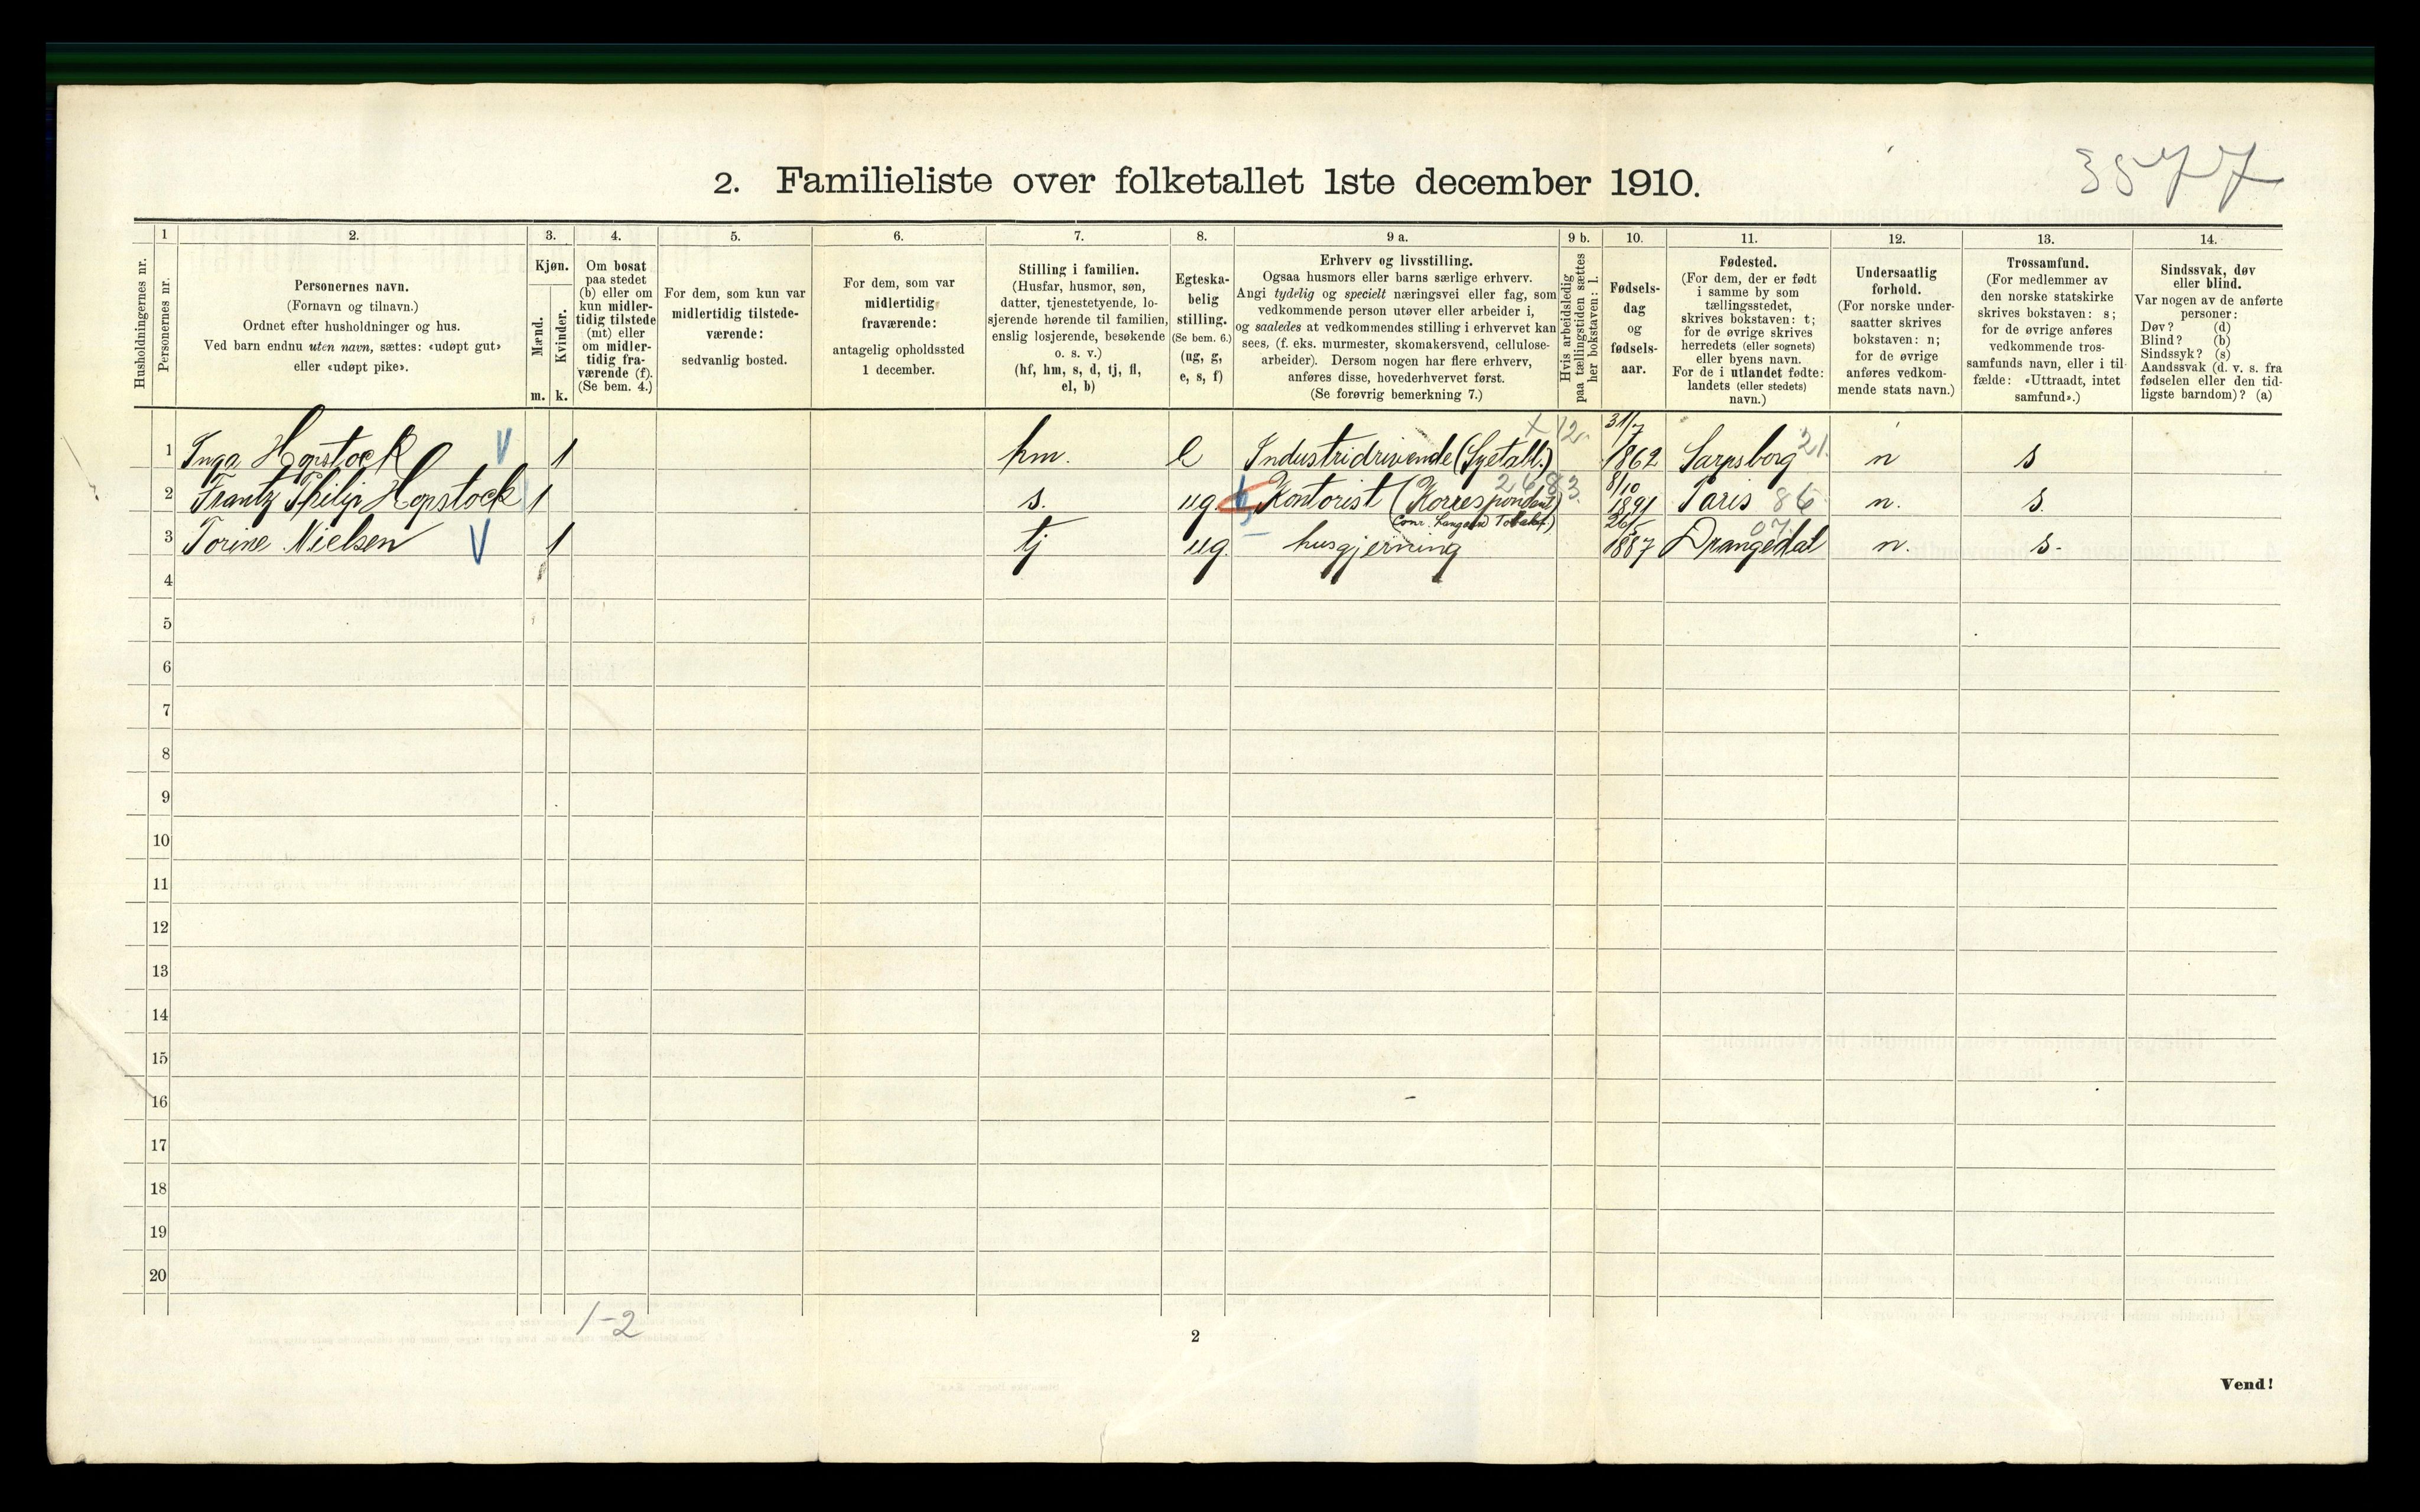 3577
2. Familieliste over folketallet 1ste december 1910.
Husholdningernes nr.
1
Personernes nr.
2.
Personernes navn.
(Fornavn og tilnavn.)
Ordnet efter husholdninger og hus.
Ved barn endnu uten navn, sættes: «udøpt gut»
eller «udøpt pike».
3.
Kjøn.
Mænd.
Kvinder.
m. k.
4.
Om bosat
paa stedet
(b) eller om
kun midler-
tidig tilstede
(mt) eller
om midler-
tidig fra-
værende (f).
(Se bem. 4.)
5.
For dem, som kun var
midlertidig tilstede-
værende:
sedvanlig bosted.
6.
For dem, som var
midlertidig
fraværende:
antagelig opholdssted
1 december.
7.
Stilling i familien.
(Husfar, husmor, søn,
datter, tjenestetyende, lo-
sjerende hørende til familien,
enslig losjerende, besøkende
o. s. v.)
(hf, hm, s, d, tj, fl,
el, b)
8.
Egteska-
belig
stilling.
(Se bem. 6.)
(ug, g,
e, s, f)
9 a.
Erhverv og livsstilling.
Ogsaa husmors eller barns særlige erhverv.
Angi tydelig og specielt næringsvei eller fag, som
vedkommende person utøver eller arbeider i,
og saaledes at vedkommendes stilling i erhvervet kan
sees, (f. eks. murmester, skomakersvend, cellulose-
arbeider). Dersom nogen har flere erhverv,
anføres disse, hovederhvervet først.
(Se forøvrig bemerkning 7.)
9 b.
Hvis arbeidsledig
paa tællingstiden sættes
her bokstaven: l.
10.
Fødsels-
dag
og
fødsels-
aar.
11.
Fødested.
(For dem, der er født
i samme by som
tællingsstedet,
skrives bokstaven: t;
for de øvrige skrives
herredets (eller sognets)
eller byens navn.
For de i utlandet fødte:
landets (eller stedets)
navn.)
12.
Undersaatlig
forhold.
(For norske under-
saatter skrives
bokstaven: n;
for de øvrige
anføres vedkom-
mende stats navn.)
13.
Trossamfund.
(For medlemmer av
den norske statskirke
skrives bokstaven: s;
for de øvrige anføres
vedkommende tros-
samfunds navn, eller i til-
fælde: «Uttraadt, intet
samfund».)
14.
Sindssvak, døv
eller blind.
Var nogen av de anførte
personer:
Døv? (d)
Blind? (b)
Sindssyk? (s)
Aandssvak (d. v. s. fra
fødselen eller den tid-
ligste barndom)? (a)
1 Inga Hopstock V 1 hm. e Industridrivende (Syetabl.) x 12. 31/7 1862 Sarpsborg 21. n s
2 Frantz Philip Hopstock 1 s. ug. Kontorist (Korrespondent) 8/10 1891 Paris 86 n. s.
(Conr. Langaard Tobaksf.)
3 Torine Nielsen V 1 tj ug. husgjerning 26/5 1887 Drangedal 07. n. s.
4
5
6
7
8
9
10
11
12
13
14
15
16
17
18
19
20
1-2
2
Vend!